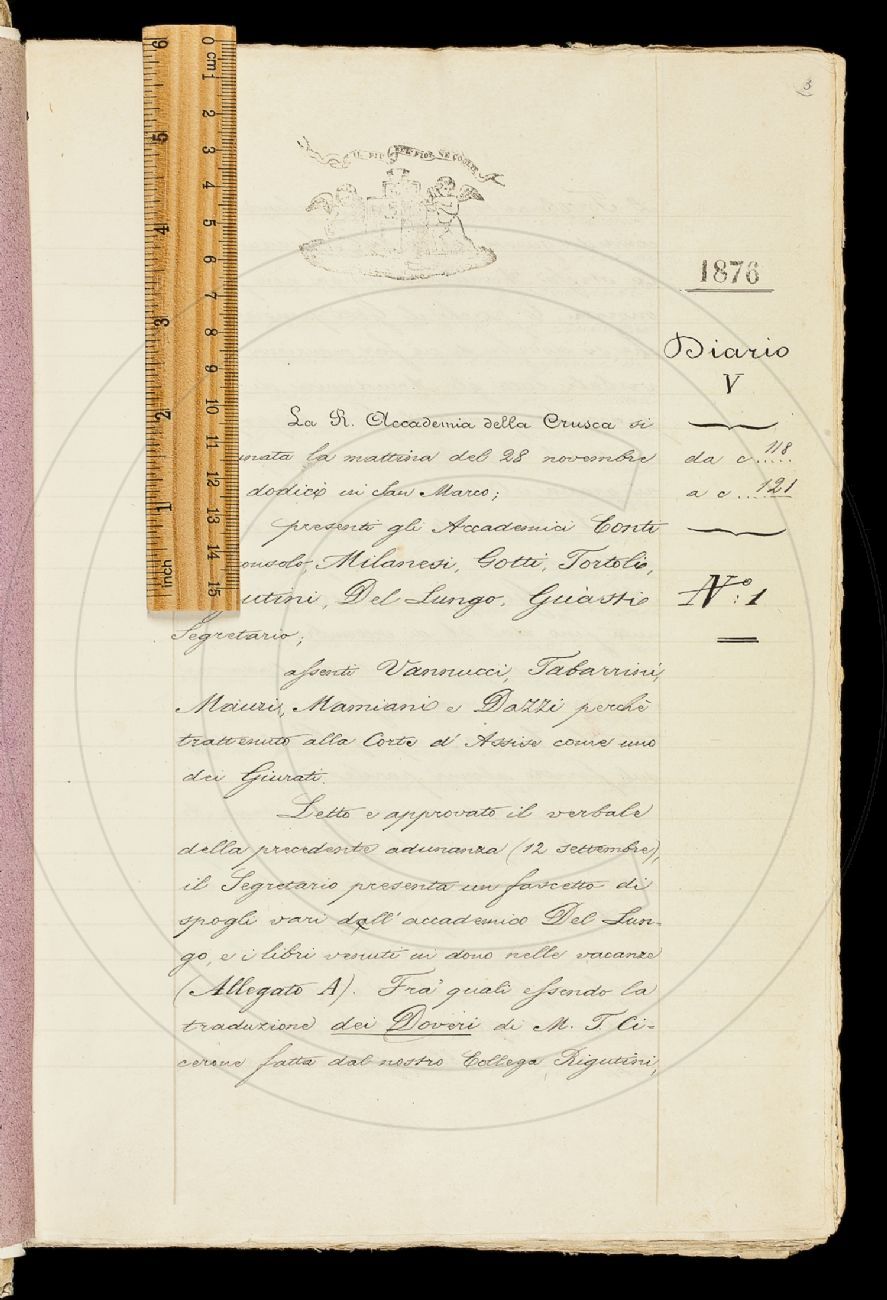 3
IL PIÙ BEL FIOR NE COGLIE
1876
Diario
V
da c. 118
a c. 121
N.º 1
La R. Accademia della Crusca si
unata la mattina del 28 novembre
dodici in San Marco;
presenti gli Accademici Conti
onsolo, Milanesi, Gotti, Tortoli,
utini, Del Lungo, Guasti
Segretario;
assenti Vannucci, Tabarrini,
Mauri, Mamiani e Dazzi perchè
trattenuto alla Corte d'Assise come uno
dei Giurati.
Letto e approvato il verbale
della precedente adunanza (12 settembre),
il Segretario presenta un fascetto di
spogli vari dall'accademico Del Lun-
go, e i libri venuti in dono nelle vacanze
(Allegato A). Fra' quali essendo la
traduzione dei Doveri di M. T. Ci-
cerone fatta dal nostro Collega Rigutini,
0 cm 1 2 3 4 5 6 7 8 9 10 11 12 13 14 15
inch 1 2 3 4 5 6